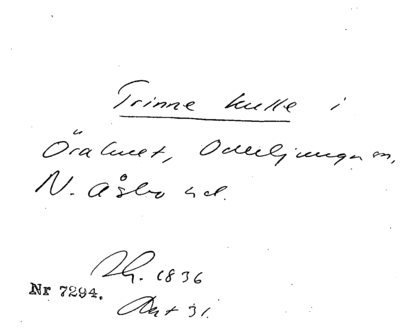 Trinne kulle i
Örahult, Oderljunga sn,
N. Åsbo hd.
1836
Nr 7294.
31.